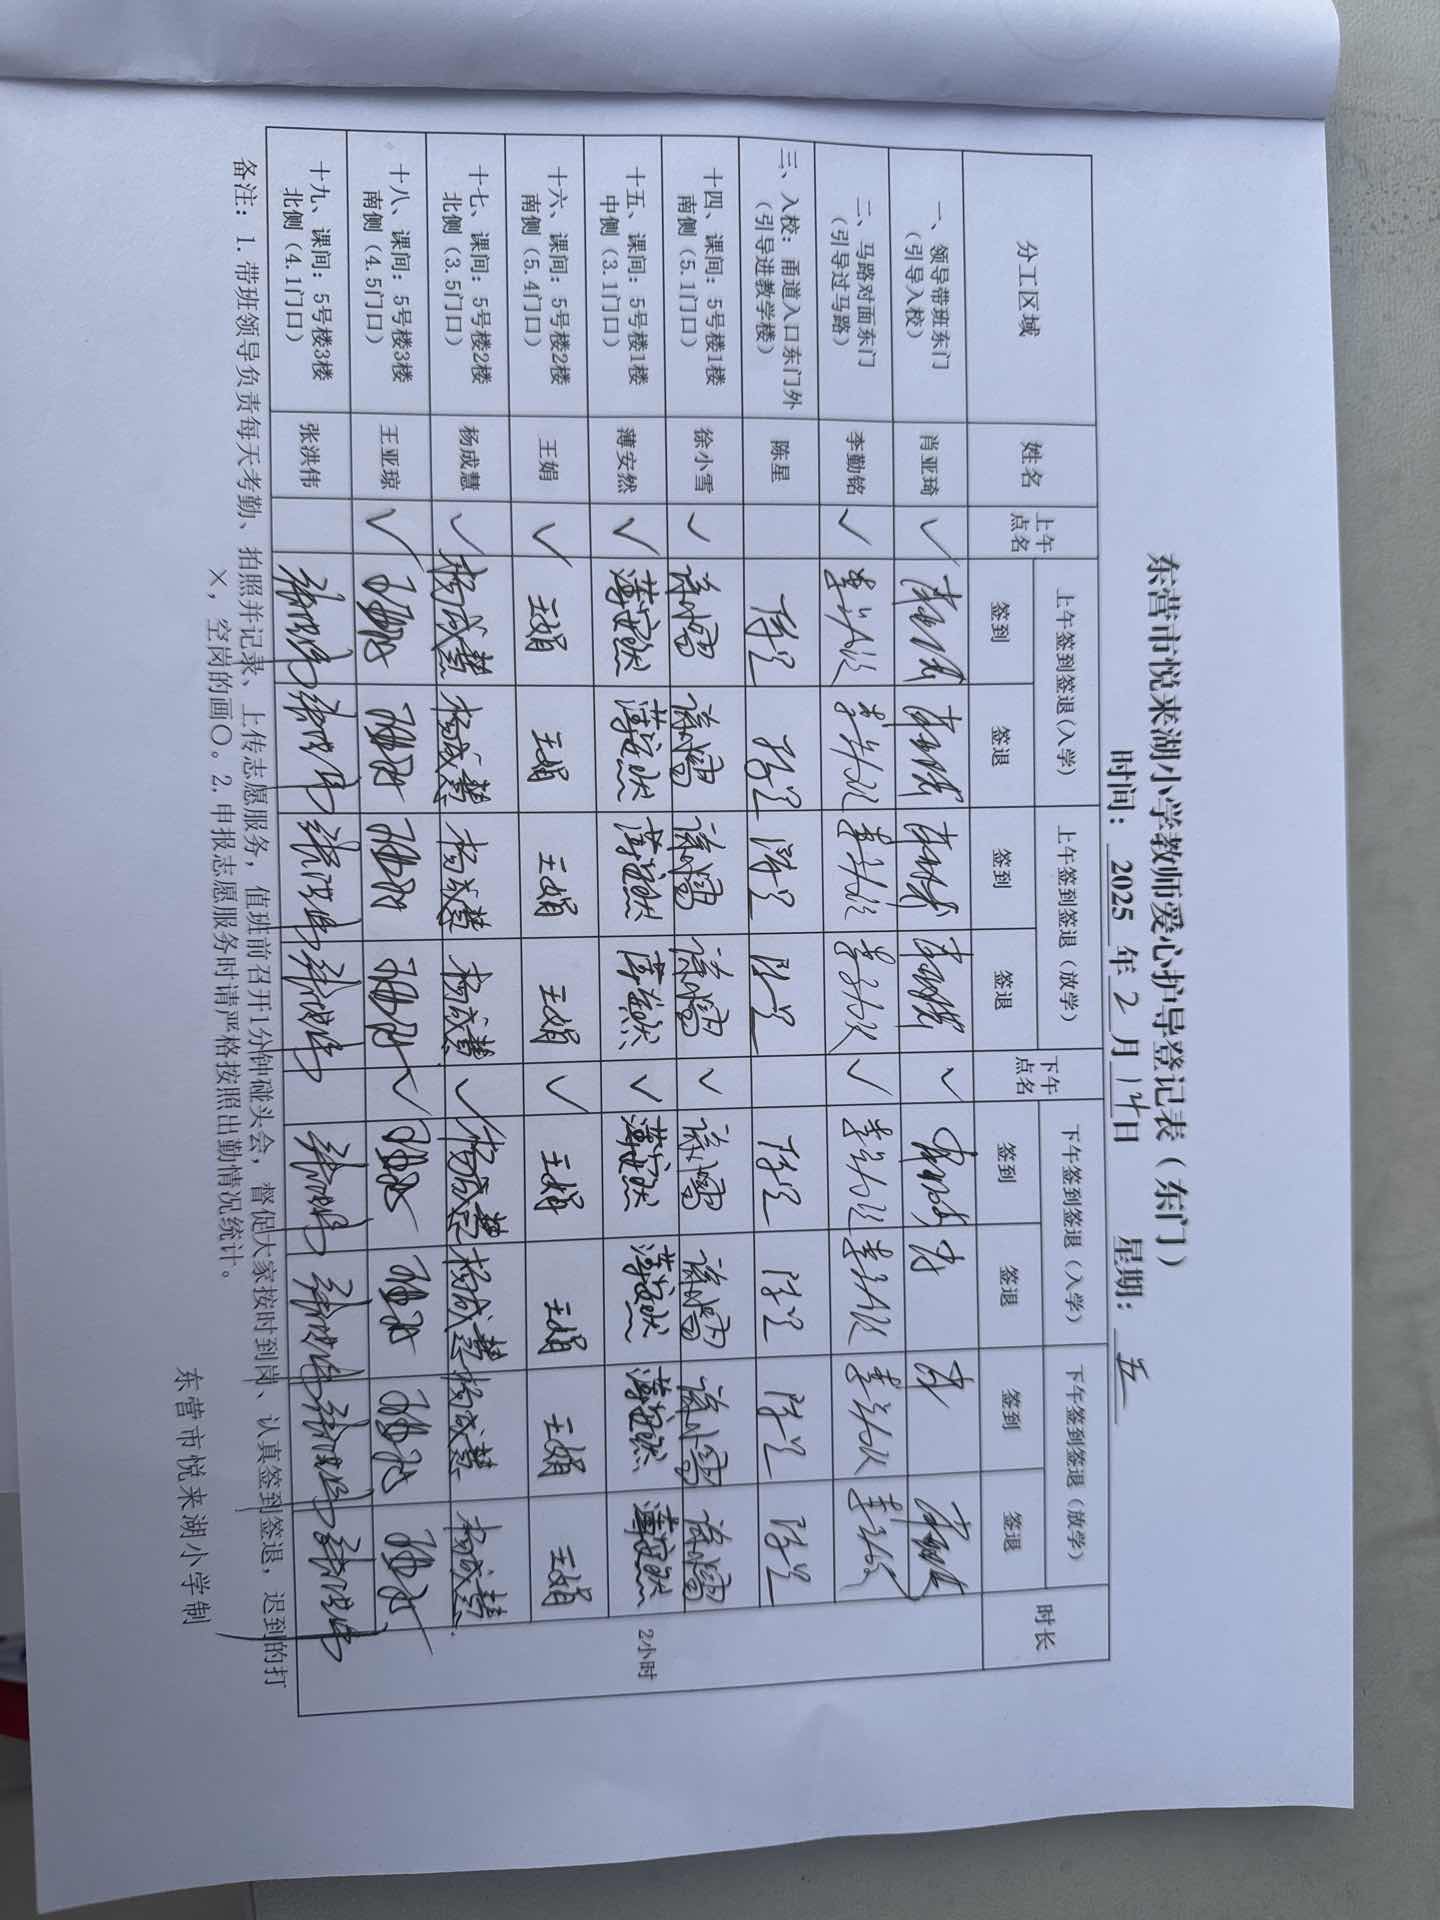 东营市悦来湖小学教师爱心护导登记表（东门）
时间：2025年2月14日 星期：五
分工区域 姓名 上午点名 上午签到签退（入学） 上午签到签退（放学） 下午点名 下午签到签退（入学） 下午签到签退（放学） 时长
签到 签退 签到 签退 签到 签退 签到 签退
一、领导带班东门 肖亚琦 ✓ ✓
（引导入校）
二、马路对面东门 李勤铭 ✓ ✓
（引导过马路）
三、入校：甬道入口东门外 陈星 陈星 陈星 陈星 陈星 陈星 陈星 陈星 陈星
（引导进教学楼）
十四、课间：5号楼1楼 徐小雪 ✓ 徐小雪 徐小雪 徐小雪 徐小雪 ✓ 徐小雪 徐小雪 徐小雪 徐小雪
南侧（5.1门口）
十五、课间：5号楼1楼 薄安然 ✓ 薄安然 薄安然 薄安然 薄安然 ✓ 薄安然 薄安然 薄安然 薄安然 2小时
中侧（3.1门口）
十六、课间：5号楼2楼 王娟 ✓ 王娟 王娟 王娟 王娟 ✓ 王娟 王娟 王娟 王娟
南侧（5.4门口）
十七、课间：5号楼2楼 杨成慧 ✓ 杨成慧 杨成慧 杨成慧 杨成慧 ✓ 杨成慧 杨成慧 杨成慧 杨成慧
北侧（3.5门口）
十八、课间：5号楼3楼 王亚琼 ✓ ✓
南侧（4.5门口）
十九、课间：5号楼3楼 张洪伟 张洪伟 张洪伟 张洪伟 张洪伟 张洪伟 张洪伟 张洪伟 张洪伟
北侧（4.1门口）
备注：1.带班领导负责每天考勤、拍照并记录、上传志愿服务，值班前召开1分钟碰头会，督促大家按时到岗、认真签到签退，迟到的打
×，空岗的画○。2.申报志愿服务时请严格按照出勤情况统计。
东营市悦来湖小学制